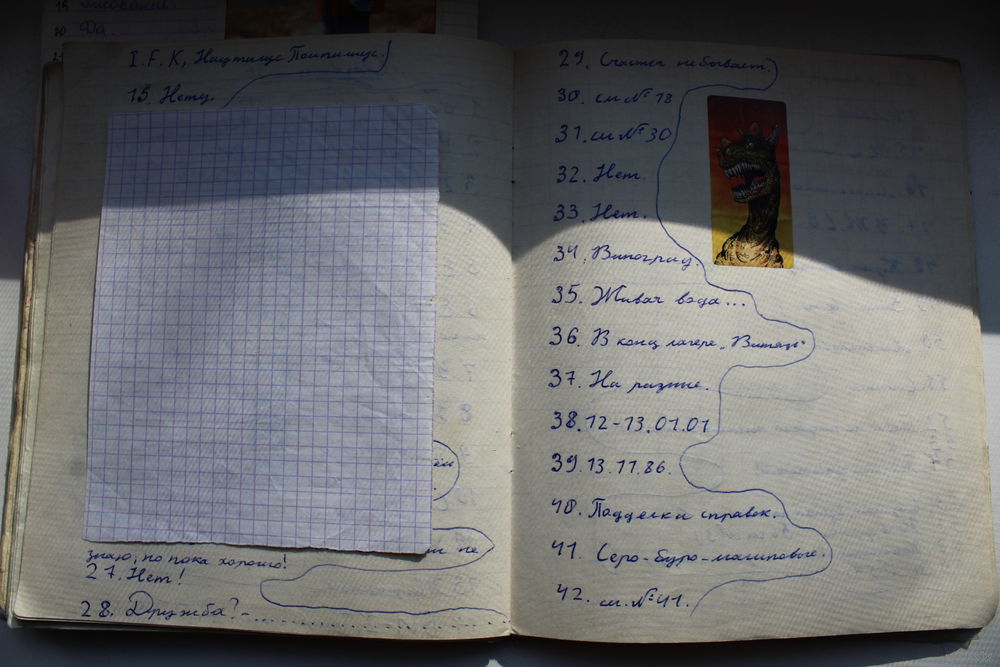 19.
20 Фа.
I. F. K, Нашлище Поппилище.
15. Нету.
знаю, но пока хорошо!
27. Нет!
28. Дружба? -
29. Счастья не бывает.
30. см № 18
31. см № 30
32. Нет
33. Нет.
34. Виноград.
35. Живая вода...
36. В конц лагере „Витязь“
37. На разные.
38. 12-13.01.01
39. 13.11.86.
40. Подделка справок.
41. Серо-буро-малиновые.
42. см. № 41.